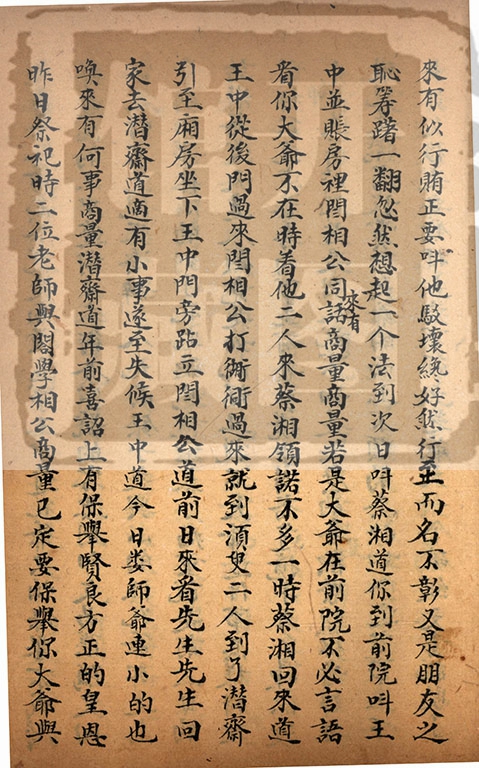 來有似行賄正要呌他駁壞纔好然行至而名不彰又是朋友之
恥籌躇一翻忽然想起一个法到次日呌蔡湘道你到前院呌王
中並賬房裡閆相公同來有話商量商量若是大爺在前院不必言語
看你大爺不在時着他二人來蔡湘領諾不多一時蔡湘回來道
王中從後門過來閆相公打衚衕過來就到須臾二人到了潛齋
引至廂房坐下王中門旁跕立閆相公道前日來看先生先生回
家去潛齋道適有小事遂至失候王中道今日娄師爺連小的也
喚來有何事商量潛齋道年前喜詔上有保舉賢良方正的皇恩
昨日祭祀時二位老師與閣學相公商量已定要保舉你大爺與